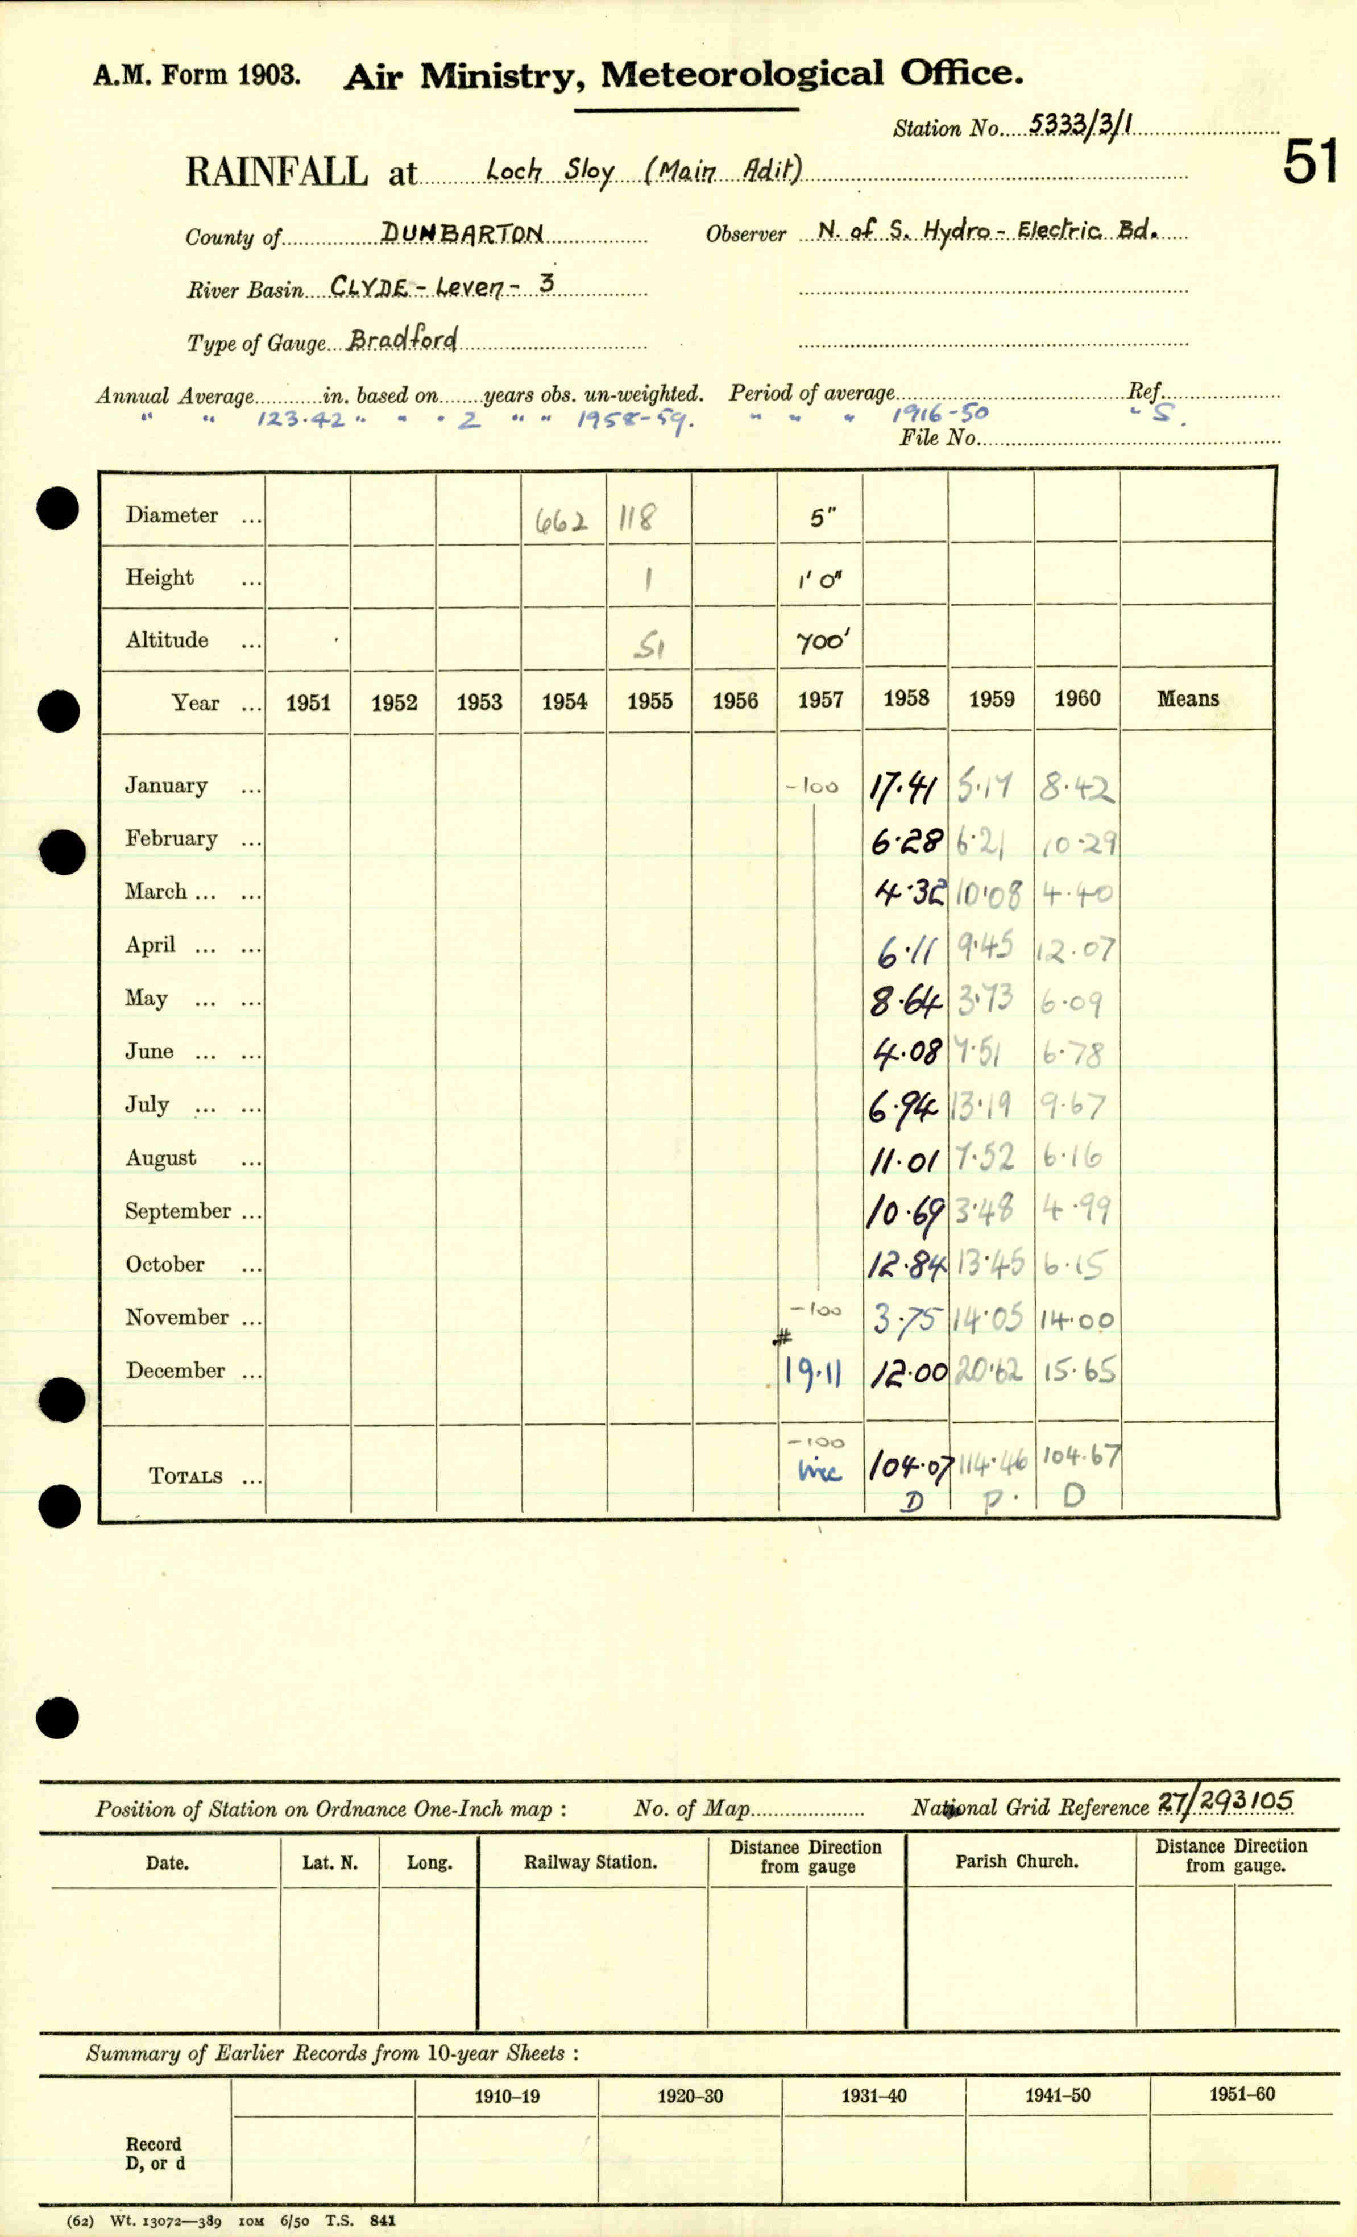 A.M. Form 1903. Air Ministry, Meteorological Office.
Station No. 5333/3/1
51
RAINFALL at Loch Sloy (Main Adit)
County of DUNBARTON Observer N. of S. Hydro-Electric Bd.
River Basin CLYDE - Leven - 3
Type of Gauge Bradford
Annual Average in. based on years obs. un-weighted. Period of average Ref.
" " 123.42 " " " 2 " " 1958-59. " " " 1916-50 " S.
File No.
Diameter ... 662 118 5"
Height ... 1 1' 0"
Altitude ... 51 700'
Year ... 1951 1952 1953 1954 1955 1956 1957 1958 1959 1960 Means
January ... -100 17.41 5.17 8.42
February ... 6.28 6.21 10.29
March ... ... 4.32 10.08 4.40
April ... ... 6.11 9.45 12.07
May ... ... 8.64 3.73 6.09
June ... ... 4.08 7.51 6.78
July ... ... 6.94 13.19 9.67
August ... 11.01 7.52 6.16
September ... 10.69 3.48 4.99
October ... 12.84 13.45 6.15
November ... -100 3.75 14.05 14.00
#
December ... 19.11 12.00 20.62 15.65
-100
TOTALS ... 104.07 114.46 104.67
D P. D
Position of Station on Ordnance One-Inch map : No. of Map National Grid Reference 27/293105
Date. Lat. N. Long. Railway Station. Distance Direction from gauge Parish Church. Distance Direction from gauge.
Summary of Earlier Records from 10-year Sheets :
1910–19 1920–30 1931–40 1941–50 1951–60
Record
D, or d
(62) Wt. 13072—389 10M 6/50 T.S. 841